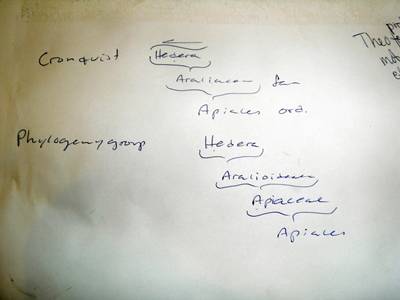 Cronquist Hedera
Araliaceae fam
Apiales ord.
Phylogeny group Hedera
Aralioideae
Apiaceae
Apiales
Theo